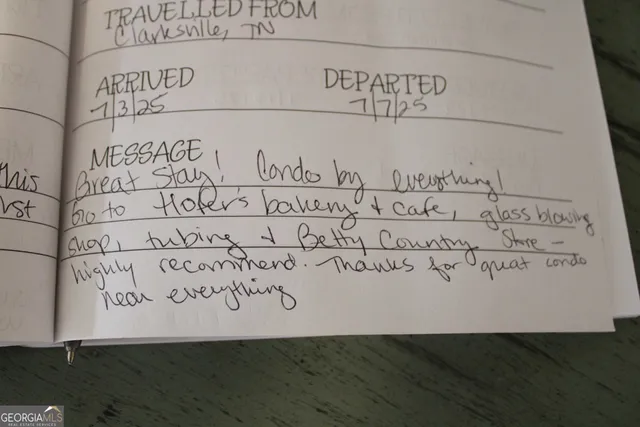 TRAVELLED FROM
Clarksville, TN
ARRIVED DEPARTED
7/3/25 7/7/25
MESSAGE
this Great Stay! Condo by everything!
1st Go to Hofer's bakery + cafe, glass blowing
shop, tubing + Betty Country Store -
highly recommend. Thanks for great condo
near everything
GEORGIAMLS
REAL ESTATE SERVICES